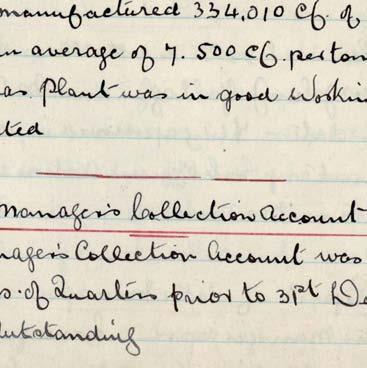 manufactured 334,010 cf. of
an average of 7.500 cf. per ton
as Plant was in good workin
ted
Manager's Collection Account
nager's Collection Account was
s. of Quarters prior to 31st De
outstanding